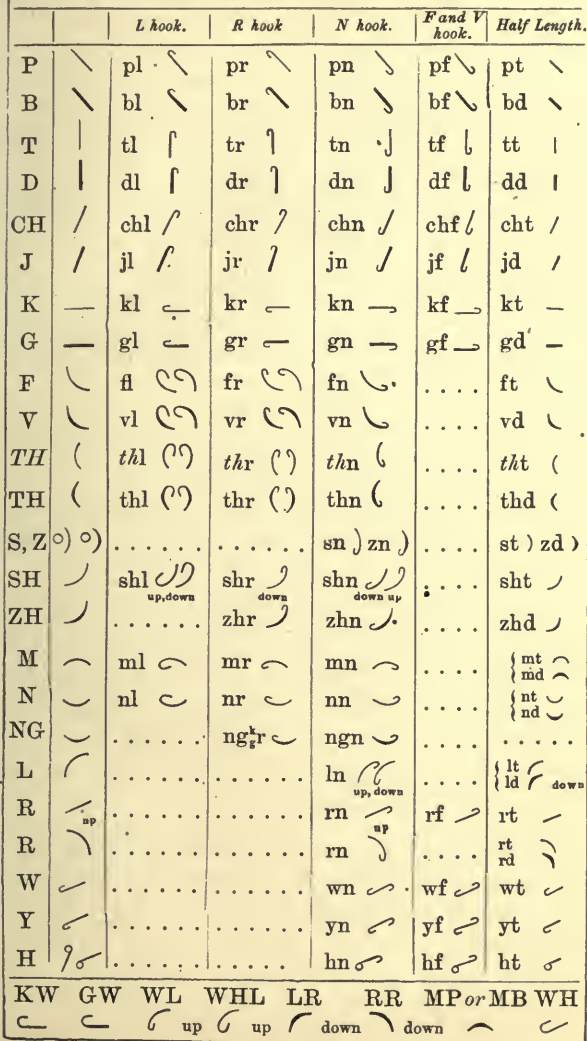 L hook. R hook N hook. F and V hook. Half Length.
P pl pr pn pf pt
B bl br bn bf bd
T tl tr tn tf tt
D dl dr dn df dd
CH chl chr chn chf cht
J jl jr jn jf jd
K kl kr kn kf kt
G gl gr gn gf gd
F fl fr fn .... ft
V vl vr vn .... vd
TH thl thr thn .... tht
TH thl thr thn .... thd
S, Z ...... ...... sn zn .... st zd
SH shl up, down shr down shn down up .... sht
ZH ...... zhr zhn .... zhd
M ml mr mn .... mt md
N nl nr nn .... nt nd
NG ...... ng k g r ngn .... .....
L ...... ...... ln up, down .... lt ld down
R up ...... ...... rn up rf rt
R ...... ...... rn .... rt rd
W ...... ...... wn wf wt
Y ...... ...... yn yf yt
H ...... ...... hn hf ht
KW GW WL WHL LR RR MP or MB WH
up up down down